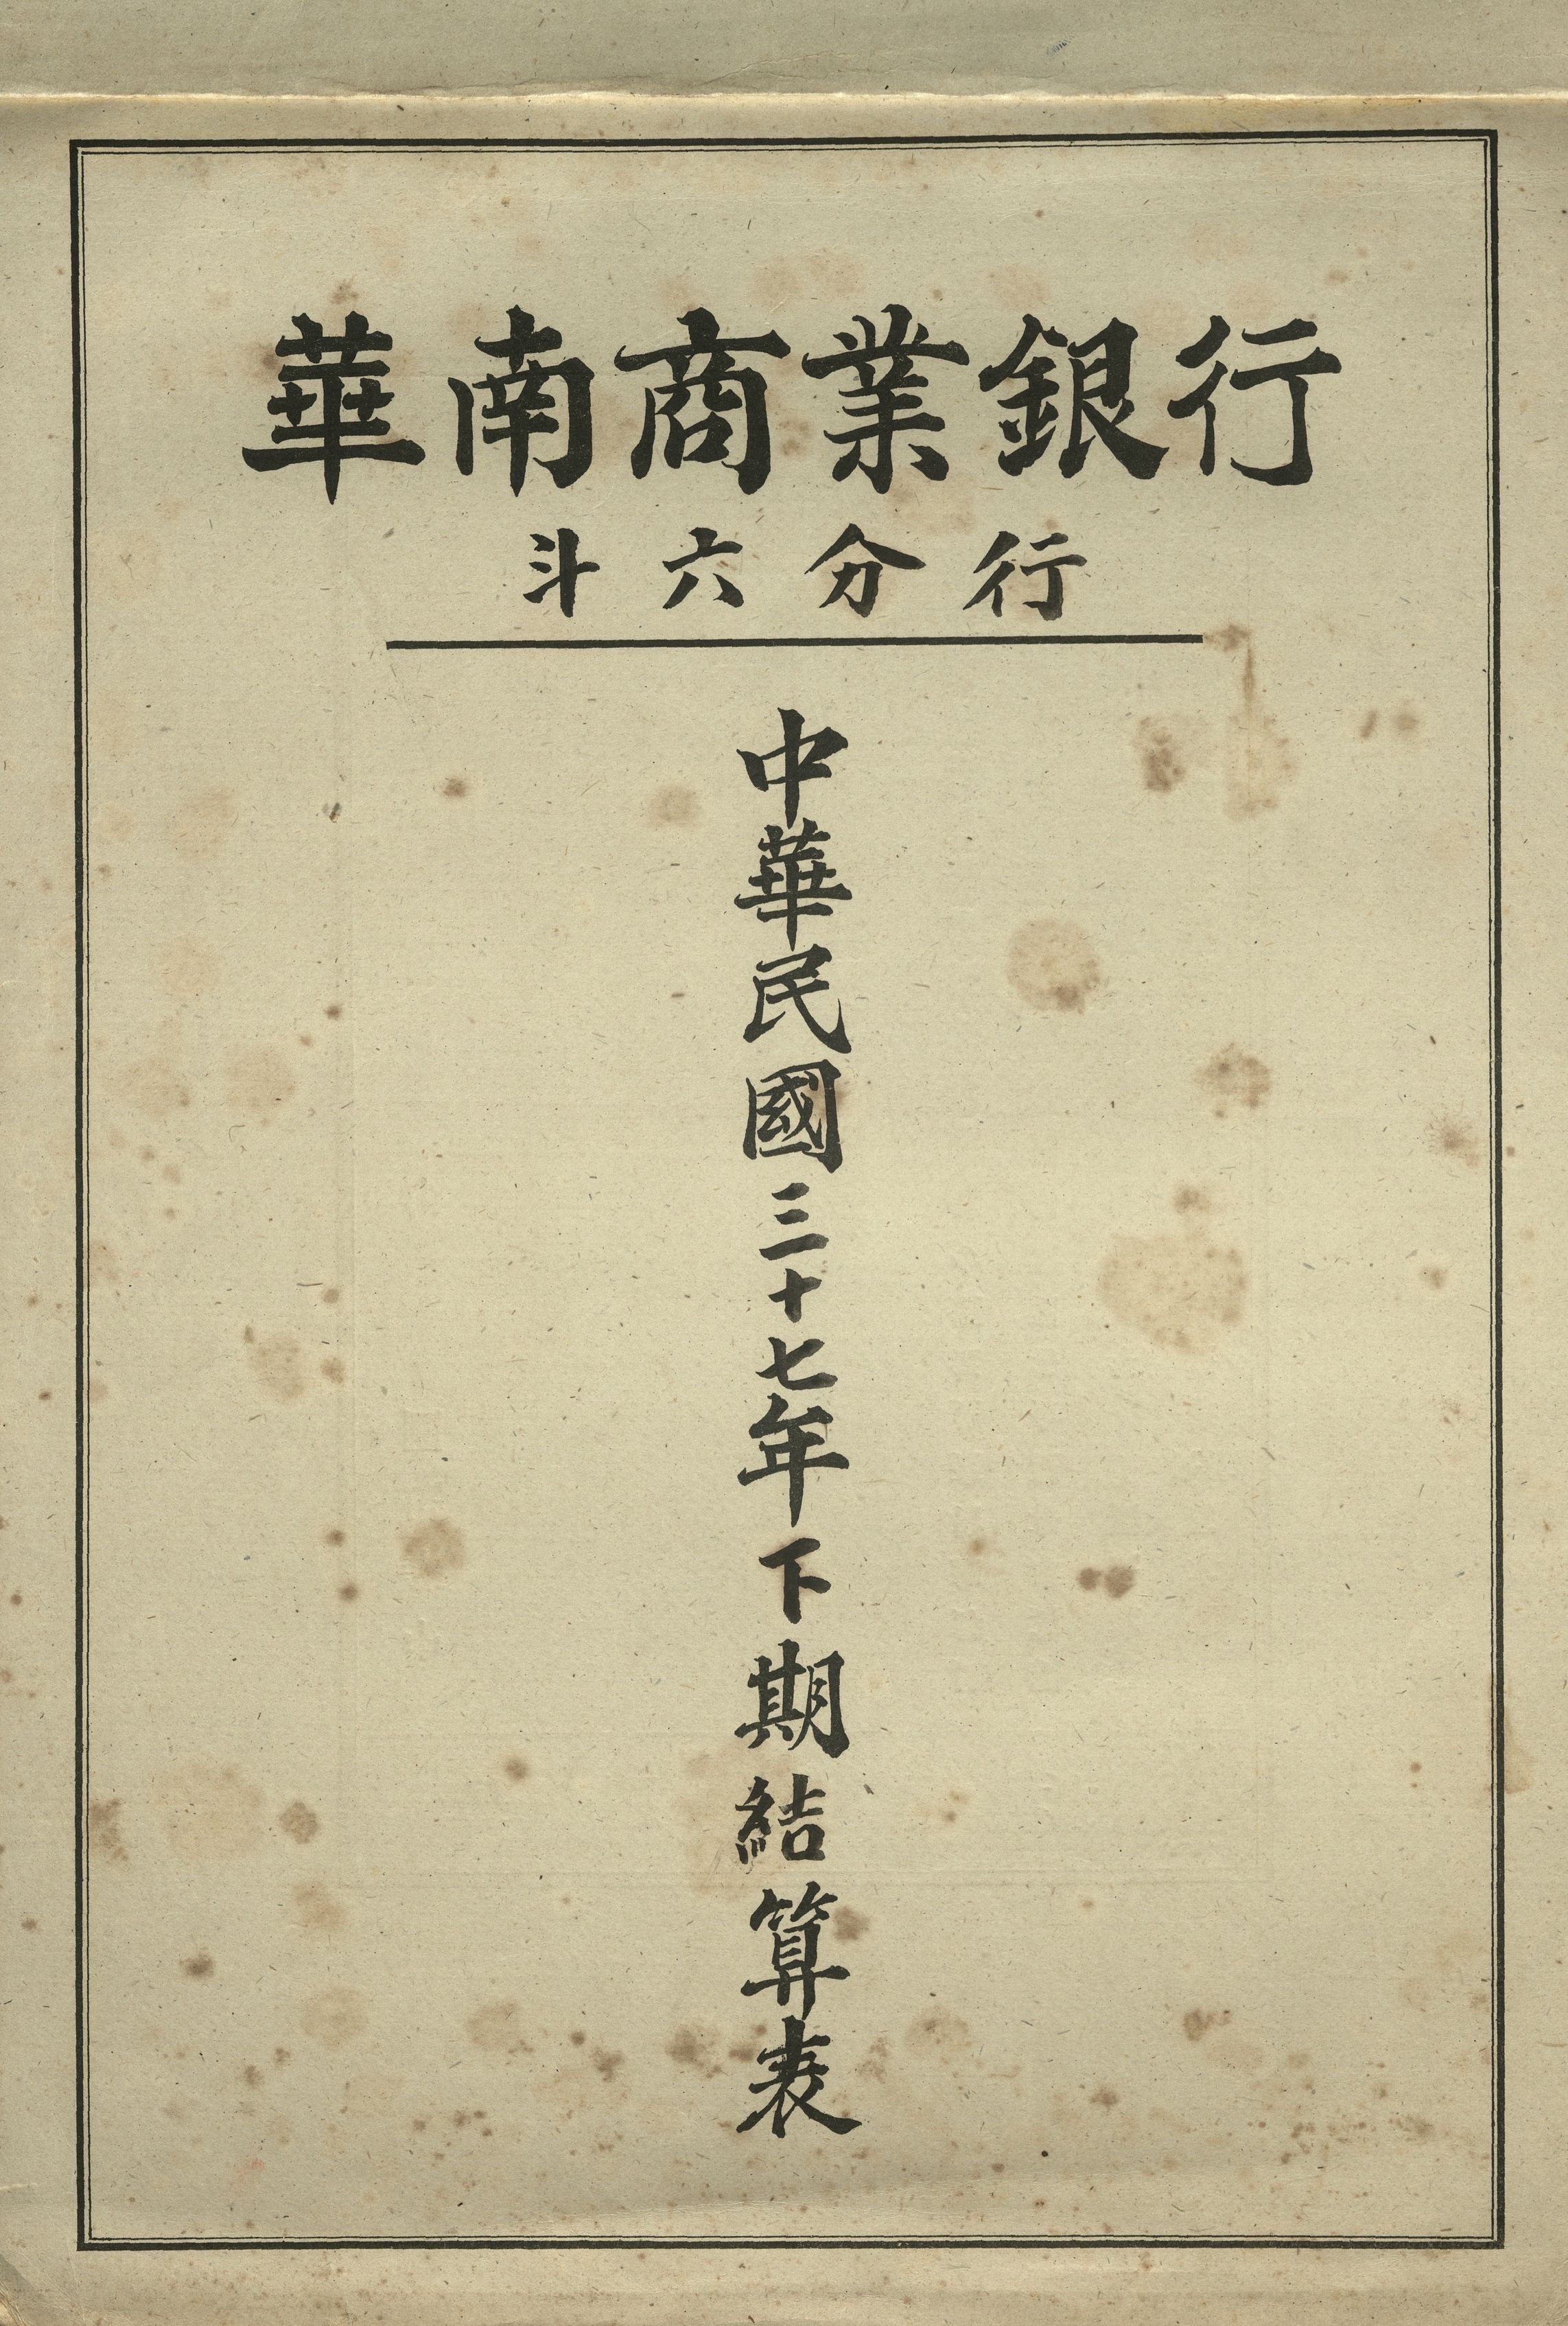 華南商業銀行
斗六分行
中華民國三十七年下期結算表